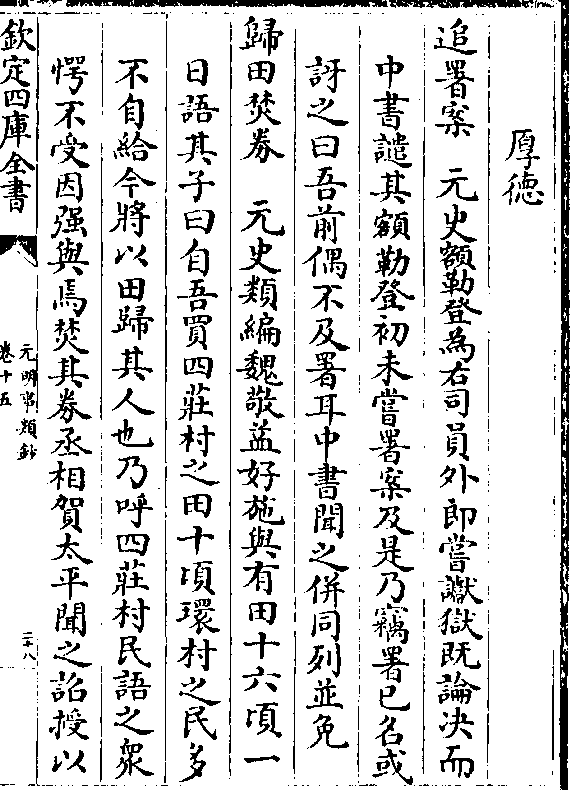 厚德
追署案　元史額勒登為右司員外郎嘗讞獄既論决而
中書譴其額勒登初未嘗署案及是乃竊署已名或
訝之曰吾前偶不及署耳中書聞之併同列並免
歸田焚券　元史類編魏敬益好施與有田十六頃一
日語其子曰自吾買四莊村之田十頃環村之民多
不自給今將以田歸其人也乃呼四莊村民語之衆
愕不受因强與焉焚其券丞相賀太平聞之詔授以
欽定四庫全書
元明事類鈔
卷十五
二十八